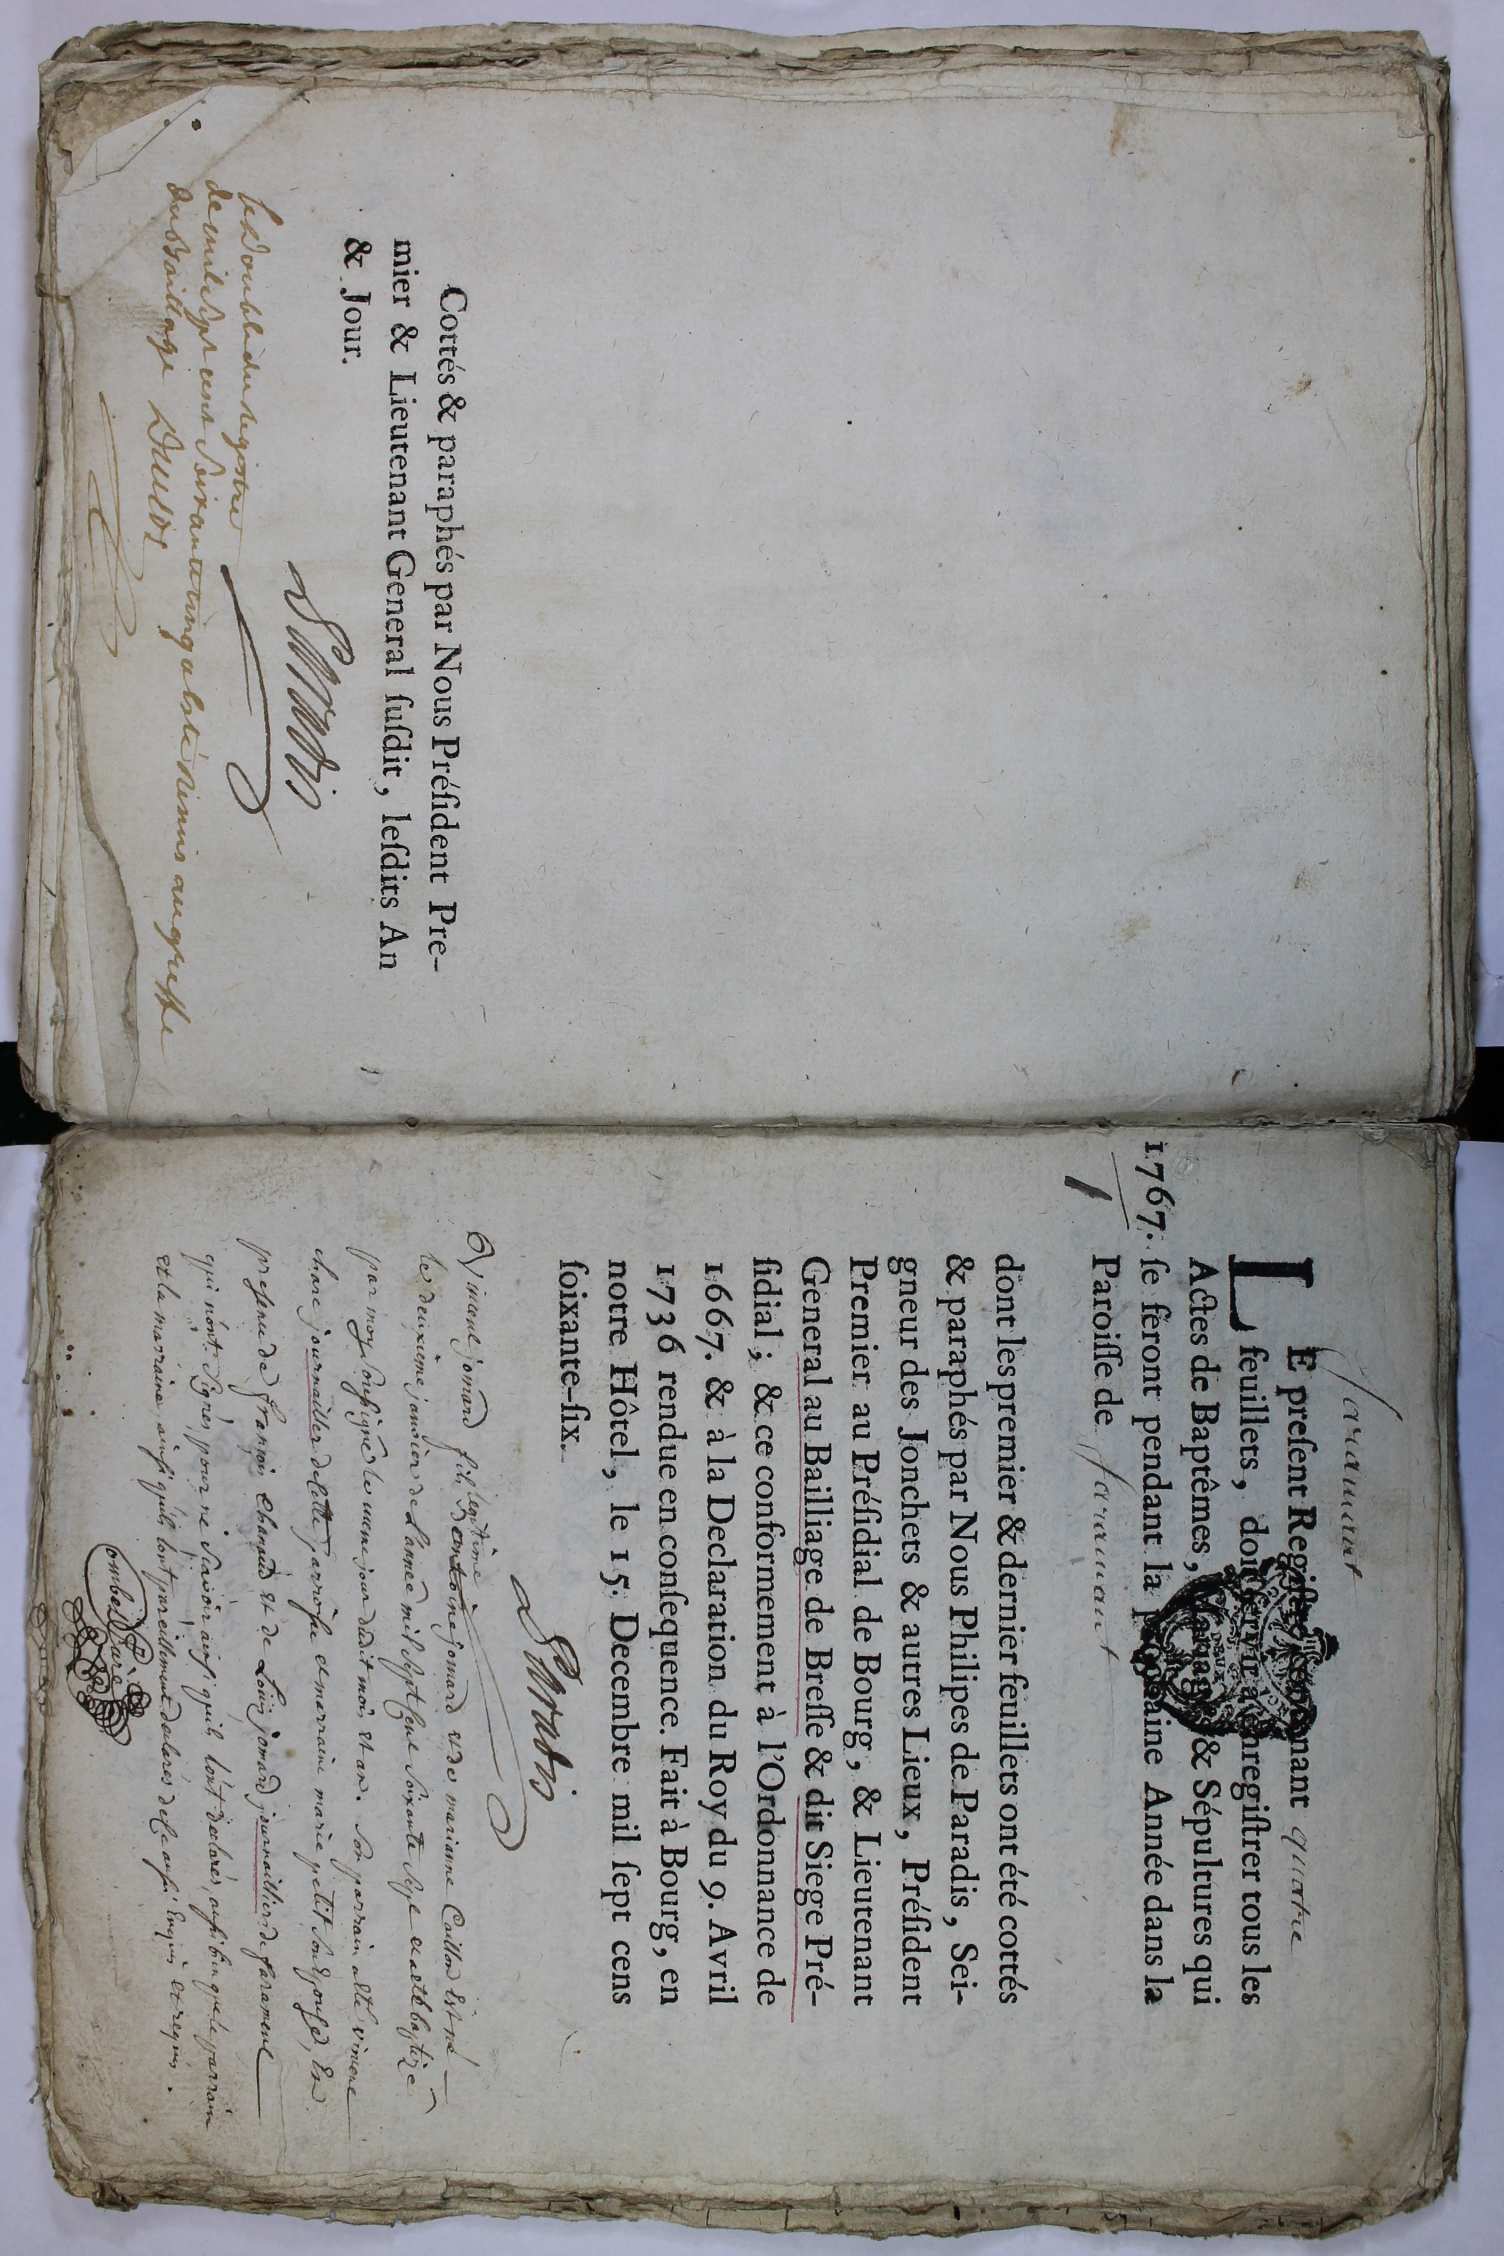 Cottés & paraphés par Nous Préſident Pre-
mier & Lieutenant General ſuſdit, leſdits An
& Jour.
le double du registre
de mil sept cent Soixante cinq a esté remis au greffe
du Bailliage
Saramant
1767.
LE preſent Regiſtre contenant quatre
feuillets, doit ſervir à enregiſtrer tous les
Actes de Baptêmes, Mariages & Sépultures qui
ſe feront pendant la prochaine Année dans la
Paroiſſe de Saramant
dont les premier & dernier feuillets ont été cottés
& paraphés par Nous Philipes de Paradis, Sei-
gneur des Jonchets & autres Lieux, Préſident
Premier au Préſidial de Bourg, & Lieutenant
General au Bailliage de Breſſe & dit Siege Pré-
ſidial; & ce conformement à l'Ordonnance de
1667. & à la Declaration du Roy du 9. Avril
1736 rendue en conſequence. Fait à Bourg, en
notre Hôtel, le 15. Decembre mil ſept cens
ſoixante-ſix.
Vincent jomard fils legitime d'antoine jomard et de marianne Caillon Est né
le deuxieme janvier de l'année mil sept sent soixante sept et a eté baptizé
par moy soussigné le meme jour dudit mois et an. Son parrain a eté vincent
journaillier de cette parroisse et merraine marie petit son Epouse, En
presence de françois Chanard et de Louis jomard journailliers de sarrament
qui n'ont signés pour ne sçavoir ainsi qu'ils l'ont declarés, aussi bien que le parrain
et la marraine ainsi qu'ils l'ont pareillement declarés de ce aussi Enquis et requis.
Curé